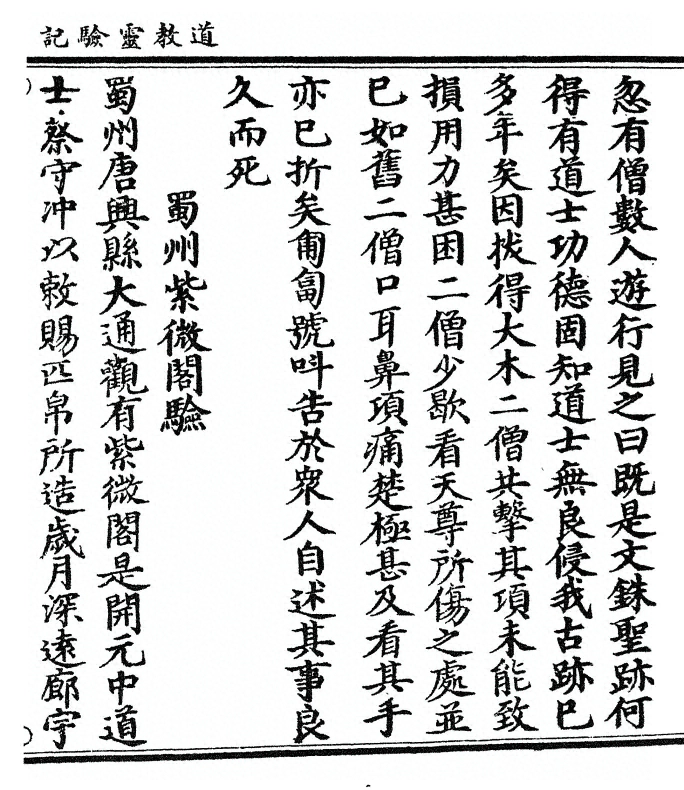 道教靈驗記
忽有僧數人遊行見之曰既是文銖聖跡何
得有道士功德固知道士無良侵我古跡巳
多年矣因拔得大木二僧共擊其項未能致
損用力甚困二僧少歇看天尊所傷之處並
巳如舊二僧口耳鼻項痛楚極甚及看其手
亦巳折矣匍匐號叫告於衆人自述其事良
久而死
蜀州紫微閣驗
蜀州唐興縣大通觀有紫微閣是開元中道
士蔡守冲以敕賜匹帛所造歲月深遠廊宇